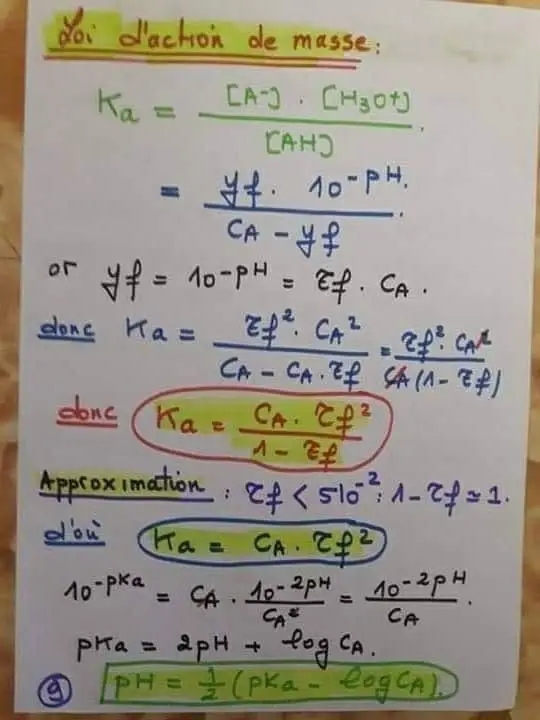 Loi d'action de masse:
Ka = [A-] . [H3O+] / [AH].
= yf . 10^-pH / CA - yf.
or yf = 10^-pH = τf . CA.
donc Ka = τf² . CA² / CA - CA . τf = τf² . CA² / CA (1 - τf)
donc Ka = CA . τf² / 1 - τf
Approximation : τf < 510^-2 : 1 - τf ≃ 1.
d'où Ka = CA . τf²
10^-pKa = CA . 10^-2pH / CA² = 10^-2pH / CA.
pKa = 2pH + log CA.
9 pH = 1/2 (pKa - log CA).